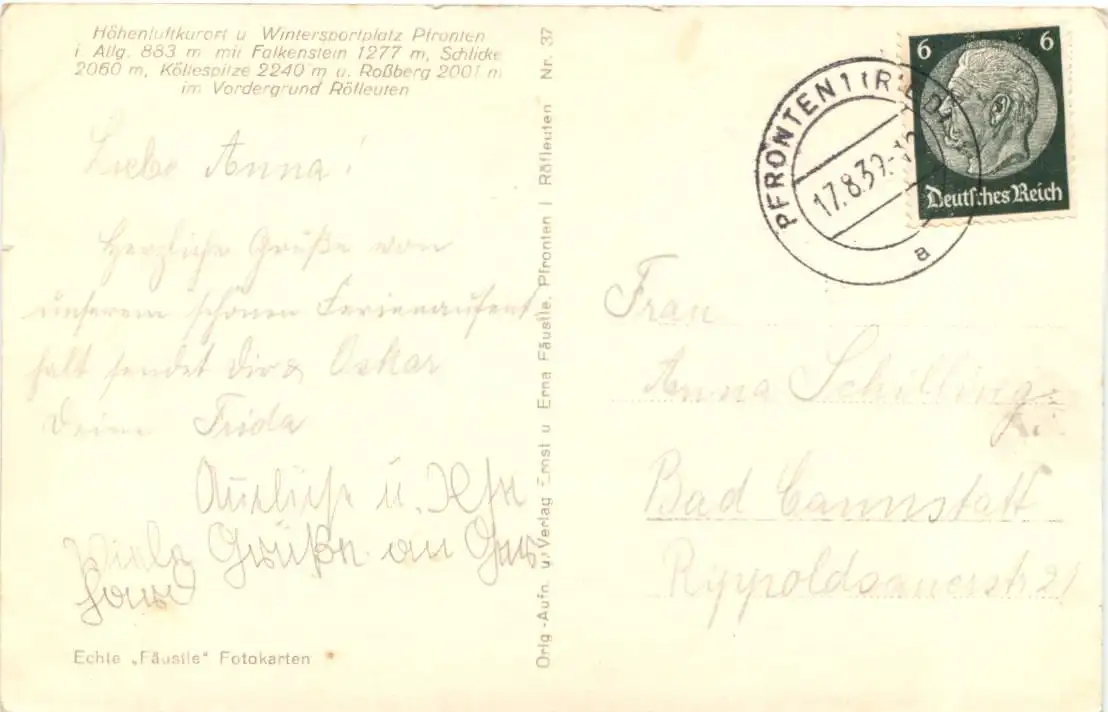 Höhenluftkurort u Wintersportplatz Pfronten
i. Allg. 883 m mit Falkenstein 1277 m, Schlicke
2060 m, Köllespitze 2240 m u. Roßberg 2001 m
im Vordergrund Röfleuten
Liebe Anna!
Herzliche Grüße von
unserem schönen Ferienaufent
halt sendet Dir & Oskar
Deine Frida
u.
Viele Grüße an
Echte „Fäustle" Fotokarten
Orig.-Aufn. u. Verlag Ernst u Erna Fäustle, Pfronten / Röfleuten Nr. 37
PFRONTEN 1 (RIED)
17.8.39.-
a
6 6
Deutsches Reich
Frau
Anna Schilling
Bad Cannstatt
Rippoldsauerstr 21